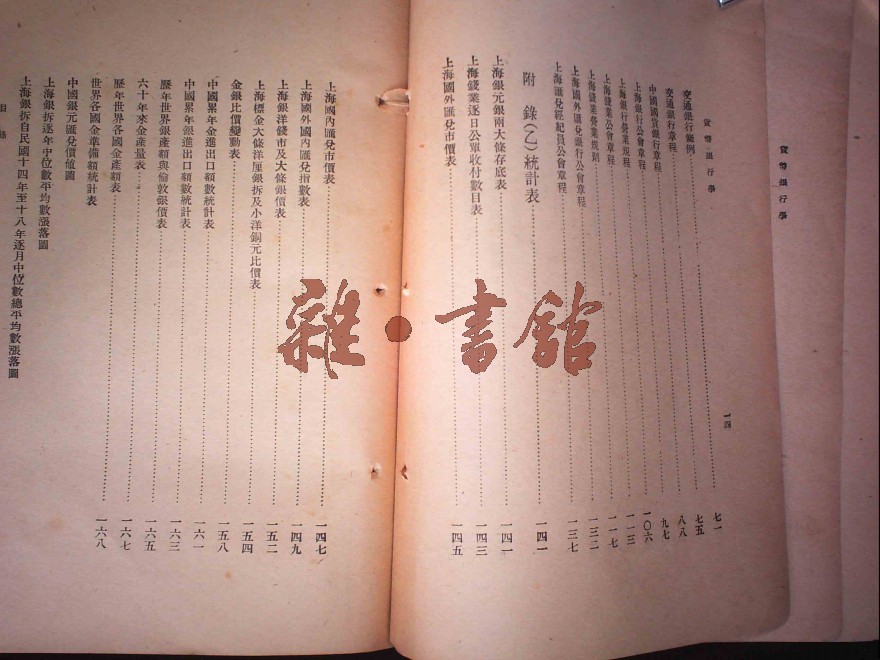 貨幣銀行學
貨幣銀行學
一四
交通銀行條例……七一
交通銀行章程……七五
中國國貨銀行章程……八八
上海銀行公會章程……九七
上海銀行營業規程……一〇六
上海錢業公會章程……一一三
上海錢業營業規則……一一七
上海國外匯兌銀行公會章程……一三二
上海匯兌經紀員公會章程……一三七
附錄(乙)統計表……一四一
上海銀元銀兩大條存底表……一四一
上海錢業逐日公單收付數目表……一四三
上海國外匯兌市價表……一四五
上海國內匯兌市價表……一四七
上海國外國內匯兌指數表……一四九
上海銀洋錢市及大條銀價表……一五二
上海標金大條洋厘銀拆及小洋銅元比價表……一五四
金銀比價變動表……一五八
中國累年金進出口額數統計表……一六一
中國累年銀進出口額數統計表……一六三
歷年世界銀產額與倫敦銀價表……一六五
六十年來金產量表……一六七
歷年世界各國金產額表……一六八
世界各國金準備額統計表
中國銀元匯兌價值圖
上海銀拆逐年中位數平均數漲落圖
上海銀拆自民國十四年至十八年逐月中位數總平均數漲落圖
目錄
雜·書館